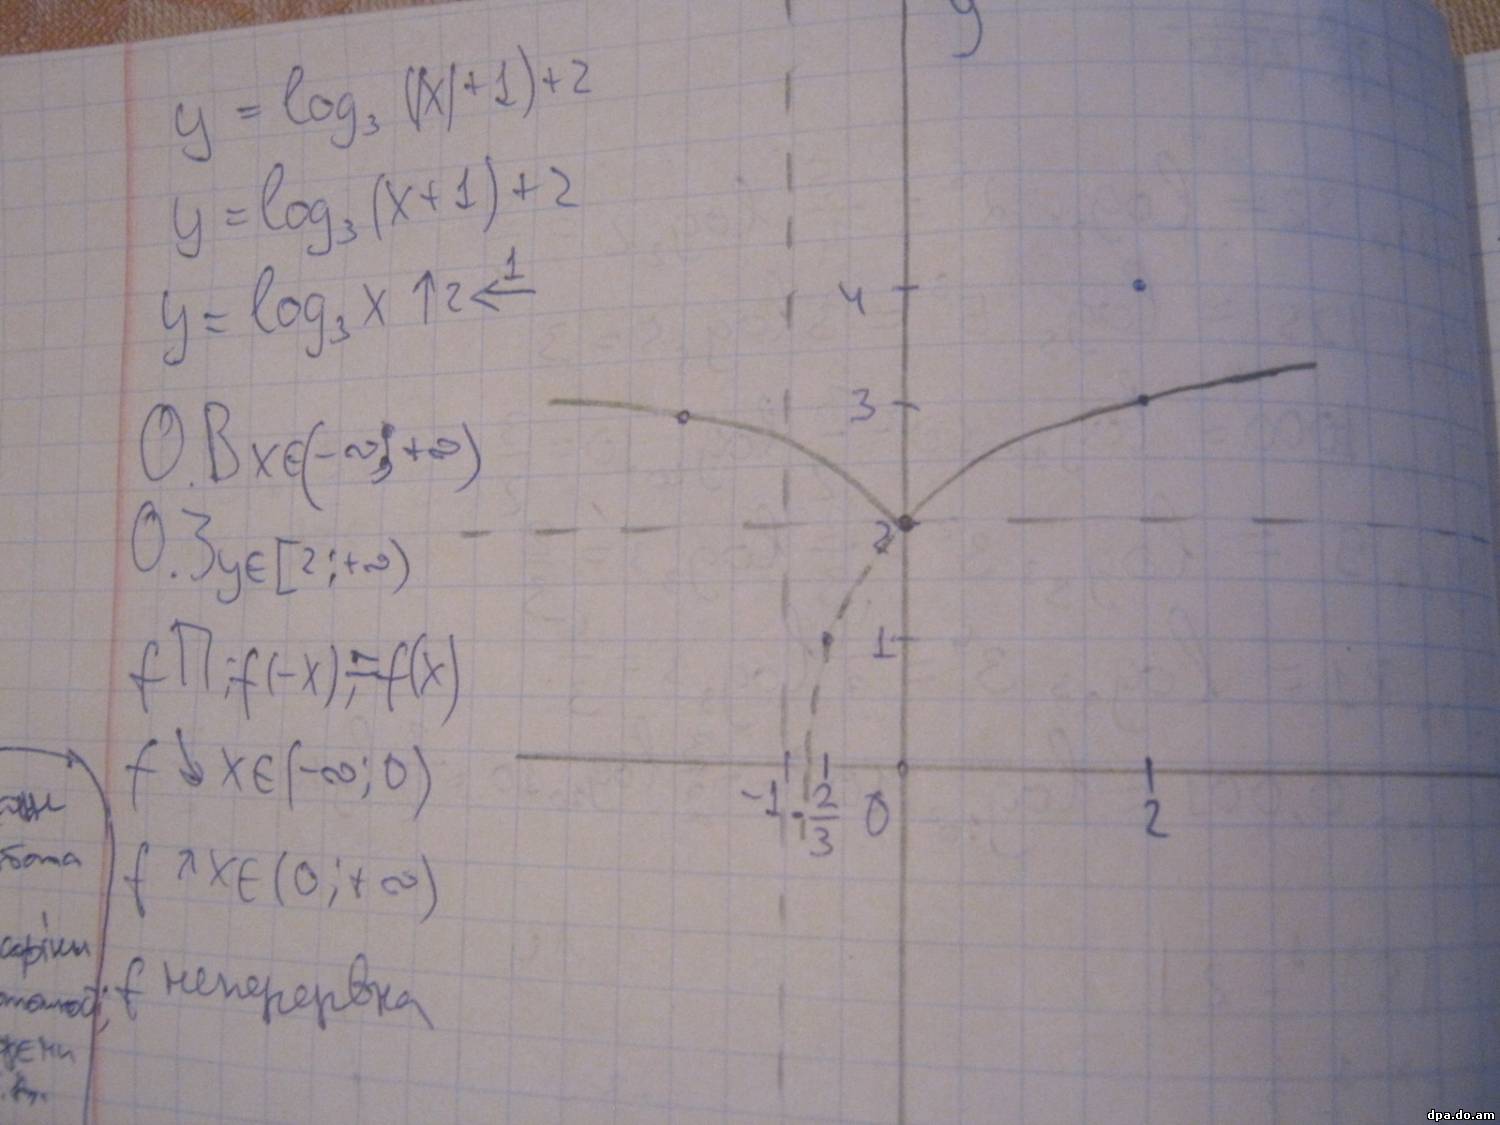 y = log₃ (|x|+1)+2
y = log₃ (x+1)+2
y = log₃ x ↑2 ←1
О.В x∈(-∞;+∞)
О.З y∈[2;+∞)
f П; f(-x);=f(x)
f ↓ x∈(-∞;0)
f ↗ x∈(0;+∞)
f неперервна
y
4
3
2
1
-1
-2/3
0
2
бота
dpa.do.am